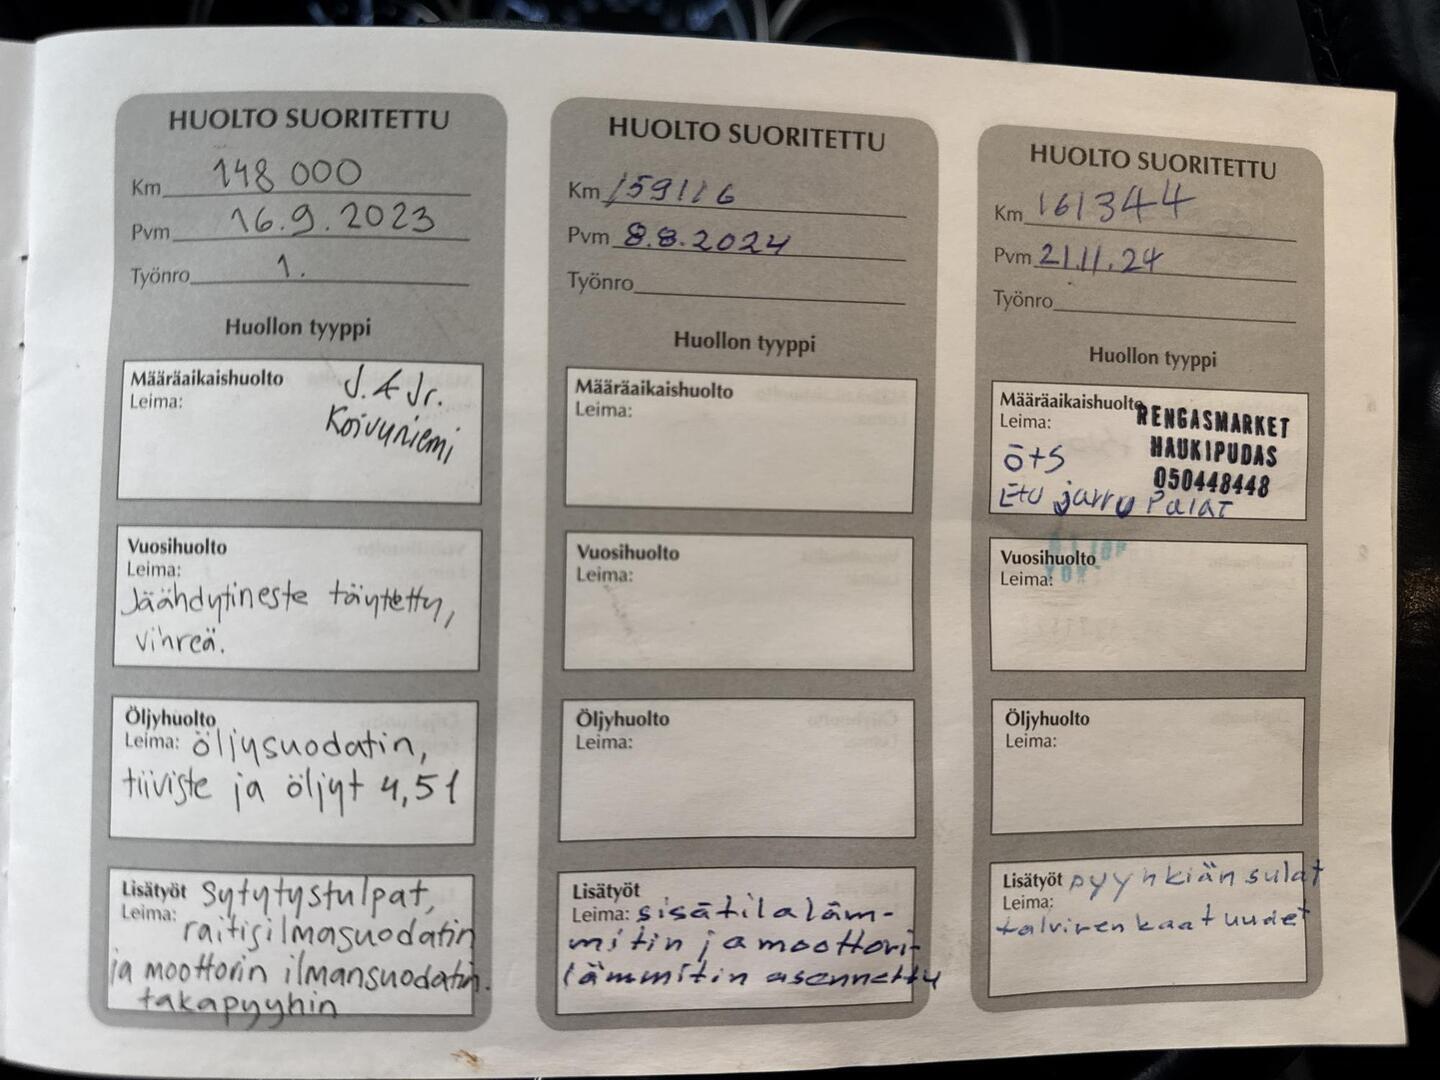 HUOLTO SUORITETTU
Km 148 000
Pvm 16.9.2023
Työnro 1.
Huollon tyyppi
Määräaikaishuolto
Leima:
J. & Jr.
Koivuniemi
Vuosihuolto
Leima:
Jäähdytineste täytetty,
vihreä.
Öljyhuolto
Leima: öljysuodatin,
tiiviste ja öljyt 4,5 l
Lisätyöt sytytystulpat,
Leima: raitisilmasuodatin
ja moottorin ilmansuodatin.
takapyyhin
HUOLTO SUORITETTU
Km 159116
Pvm 8.8.2024
Työnro
Huollon tyyppi
Määräaikaishuolto
Leima:
Vuosihuolto
Leima:
Öljyhuolto
Leima:
Lisätyöt
Leima: sisätilaläm-
mitin ja moottori-
lämmitin asennettu
HUOLTO SUORITETTU
Km 161344
Pvm 21.11.24
Työnro
Huollon tyyppi
Määräaikaishuolto
Leima:
RENGASMARKET
HAUKIPUDAS
050448448
ö+s
Etu jarru palat
Vuosihuolto
Leima:
Öljyhuolto
Leima:
Lisätyöt pyyhkiän sulat
Leima:
talvirenkaat uudet